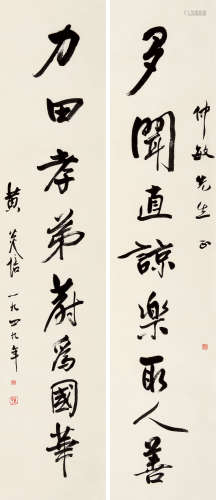 仲敏先生正
多聞直諒樂取人善
力田孝弟蔚為國華
黄炎培一九四九年